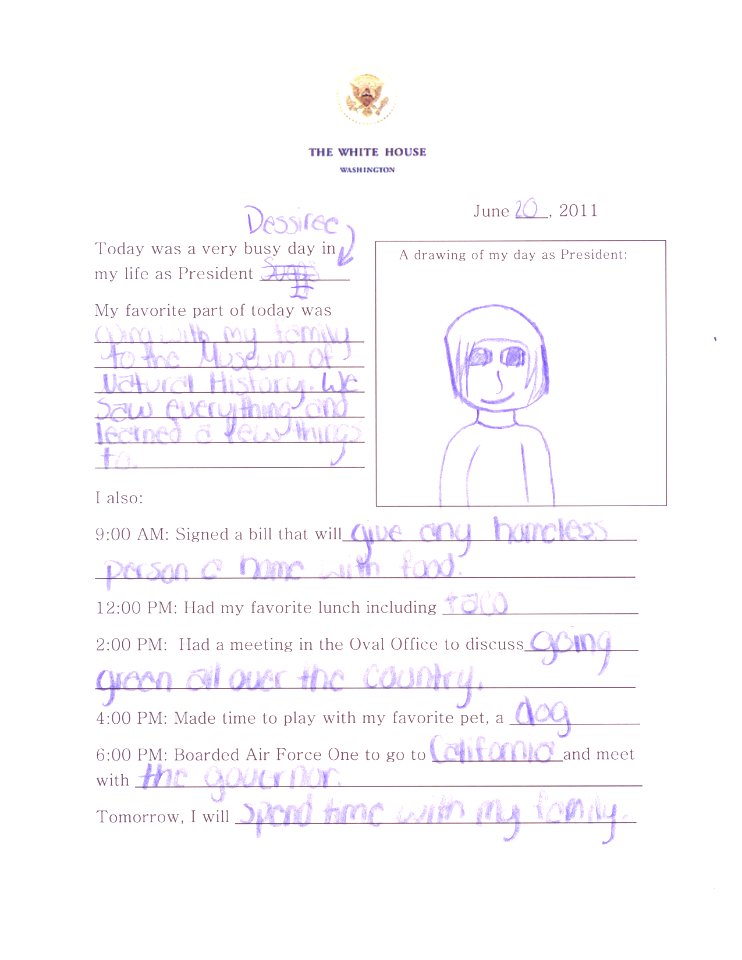 THE WHITE HOUSE
WASHINGTON
June 20, 2011
Dessiree
Today was a very busy day in
my life as President
My favorite part of today was
going with my family
to the Museum of
Natural History. We
saw everything and
learned a few things
to.
A drawing of my day as President:
I also:
9:00 AM: Signed a bill that will give any homeless
person a home with food.
12:00 PM: Had my favorite lunch including taco
2:00 PM: Had a meeting in the Oval Office to discuss going
green all over the country.
4:00 PM: Made time to play with my favorite pet, a dog
6:00 PM: Boarded Air Force One to go to California and meet
with the governor.
Tomorrow, I will spend time with my family.